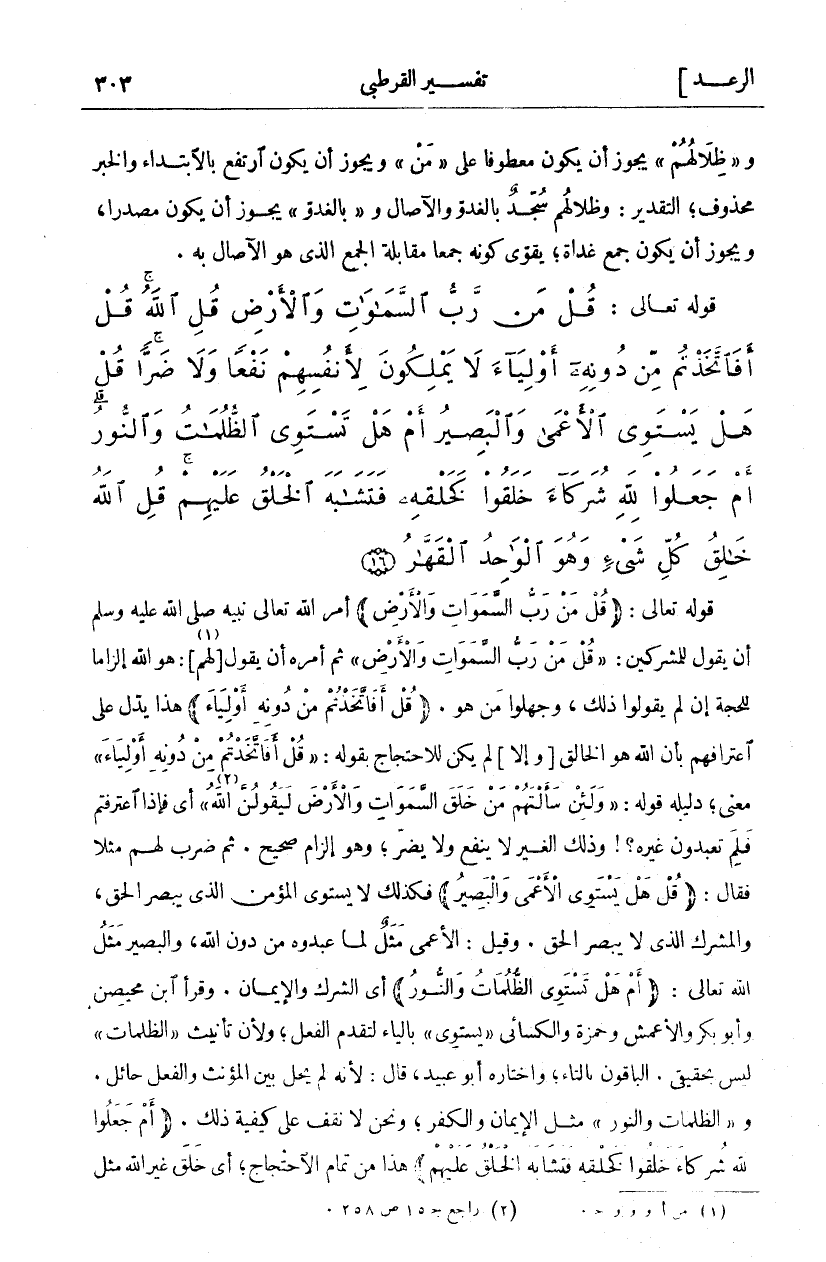 الرعد ] تفسير القرطبى ٣٠٣
و « ظِلَالُهُمْ » يجوز أن يكون معطوفا على « مَنْ » ويجوز أن يكون ٱرتفع بالٱبتداء والخبر
محذوف؛ التقدير : وظلالهُم سُجَّدٌ بالغدوّ والآصال و « بالغدوّ » يجوز أن يكون مصدرا،
ويجوز أن يكون جمع غداة؛ يقوّى كونه جمعا مقابلة الجمع الذى هو الآصال به .
قوله تعالى : قُلْ مَن رَّبُّ ٱلسَّمَٰوَٰتِ وَٱلْأَرْضِ قُلِ ٱللَّهُ ۚ قُلْ
أَفَٱتَّخَذْتُم مِّن دُونِهِۦٓ أَوْلِيَآءَ لَا يَمْلِكُونَ لِأَنفُسِهِمْ نَفْعًا وَلَا ضَرًّا ۚ قُلْ
هَلْ يَسْتَوِى ٱلْأَعْمَىٰ وَٱلْبَصِيرُ أَمْ هَلْ تَسْتَوِى ٱلظُّلُمَٰتُ وَٱلنُّورُ ۗ
أَمْ جَعَلُوا۟ لِلَّهِ شُرَكَآءَ خَلَقُوا۟ كَخَلْقِهِۦ فَتَشَٰبَهَ ٱلْخَلْقُ عَلَيْهِمْ ۚ قُلِ ٱللَّهُ
خَٰلِقُ كُلِّ شَىْءٍ وَهُوَ ٱلْوَٰحِدُ ٱلْقَهَّٰرُ ﴿١٦﴾
قوله تعالى : ﴿ قُلْ مَنْ رَبُّ السَّمَوَاتِ وَالْأَرْضِ ﴾ أمر الله تعالى نبيه صلى الله عليه وسلم
أن يقول للمشركين : « قُلْ مَنْ رَبُّ السَّمَوَاتِ وَالْأَرْضِ » ثم أمره أن يقول [لهم](١) : هو الله إلزاما
للحجة إن لم يقولوا ذلك ، وجهلوا مَن هو . ﴿ قُلْ أَفَاتَّخَذْتُمْ مِنْ دُونِهِ أَوْلِيَاءَ ﴾ هذا يدّل على
ٱعترافهم بأن الله هو الخالق [ و إلا ] لم يكن للاحتجاج بقوله : « قُلْ أَفَاتَّخَذْتُمْ مِنْ دُونِهِ أَوْلِيَاءَ »
معنى؛ دليله قوله : « وَلَئِنْ سَأَلْتَهُمْ مَنْ خَلَقَ السَّمَوَاتِ وَالْأَرْضَ لَيَقُولُنَّ اللهُ »(٢) أى فإذا ٱعترفتم
فَلِمَ تعبدون غيره؟! وذلك الغير لا ينفع ولا يضرّ؛ وهو إلزام صحيح . ثم ضرب لهم مثلا
فقال : ﴿ قُلْ هَلْ يَسْتَوِى الْأَعْمَى وَالْبَصِيرُ ﴾ فكذلك لا يستوى المؤمن الذى يبصر الحق ،
والمشرك الذى لا يبصر الحق . وقيل : الأعمى مَثَلٌ لما عبدوه من دون الله، والبصير مَثَلُ
الله تعالى : ﴿ أَمْ هَلْ تَسْتَوِى الظُّلُمَاتُ وَالنُّورُ ﴾ أى الشرك والإيمان . وقرأ ٱبن محيصن
وأبو بكر والأعمش وحمزة والكسائى « يستوى » بالياء لتقدم الفعل؛ ولأن تأنيث « الظلمات »
ليس بحقيقى . الباقون بالتاء؛ واختاره أبو عبيد، قال : لأنه لم يحل بين المؤنث والفعل حائل .
و « الظلمات والنور » مثل الإيمان والكفر؛ ونحن لا نقف على كيفية ذلك . ﴿ أَمْ جَعَلُوا
لله شُرَكَاءَ خَلَقُوا كَخَلْقِهِ فَتَشَابَهَ الْخَلْقُ عَلَيْهِمْ ﴾ هذا من تمام الٱحتجاج؛ أى خَلَق غير الله مثل
(١) من أ و و و حـ . (٢) راجع جـ ١٥ ص ٢٥٨ .